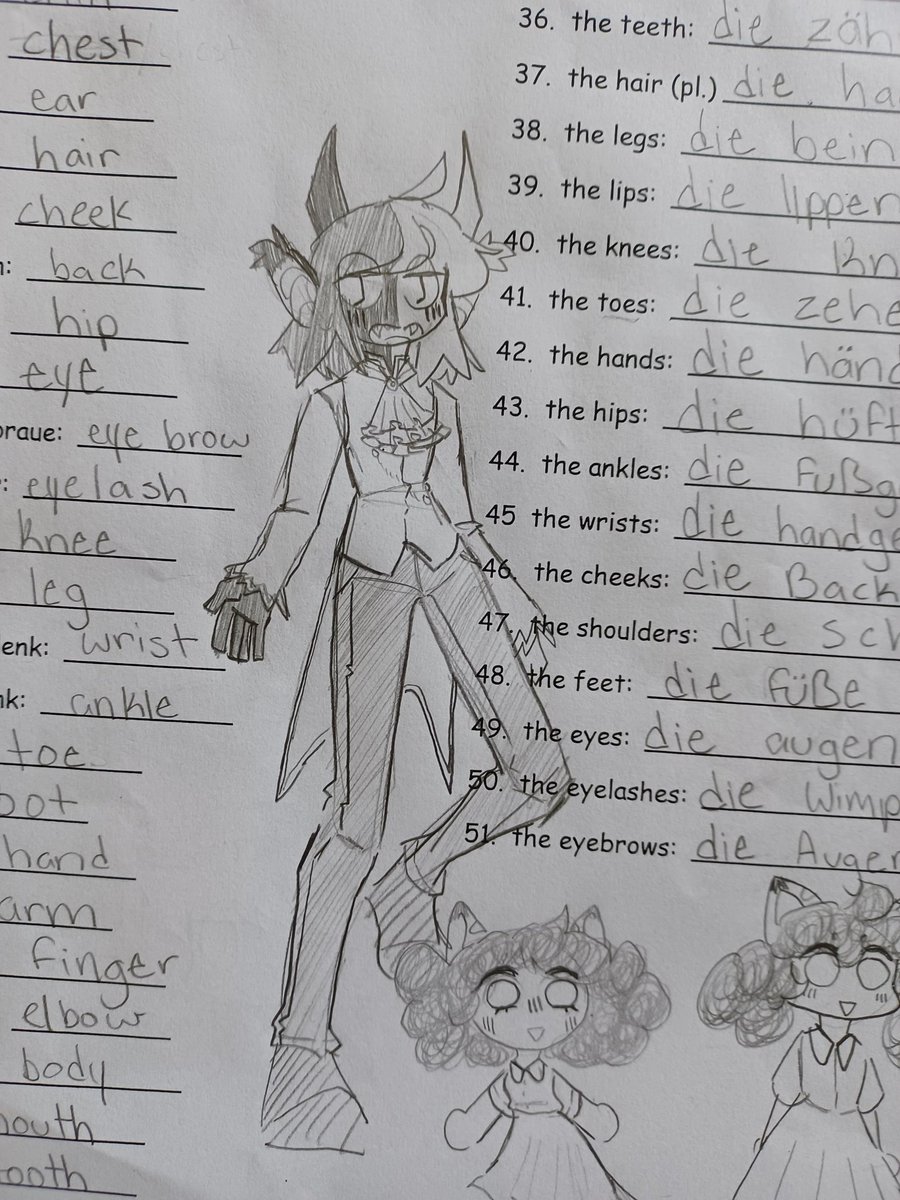 chest
ear
hair
cheek
: back
hip
eye
braue: eye brow
: eyelash
knee
leg
enk: wrist
nk: ankle
toe
oot
hand
arm
finger
elbow
body
outh
ooth
36. the teeth: die zäh
37. the hair (pl.) die ha
38. the legs: die bein
39. the lips: die lippen
40. the knees: die Kn
41. the toes: die zehe
42. the hands: die händ
43. the hips: die hüft
44. the ankles: die fußg
45 the wrists: die handge
46. the cheeks: die Back
47. the shoulders: die sch
48. the feet: die füße
49. the eyes: die augen
50. the eyelashes: die Wimp
51. the eyebrows: die Augen